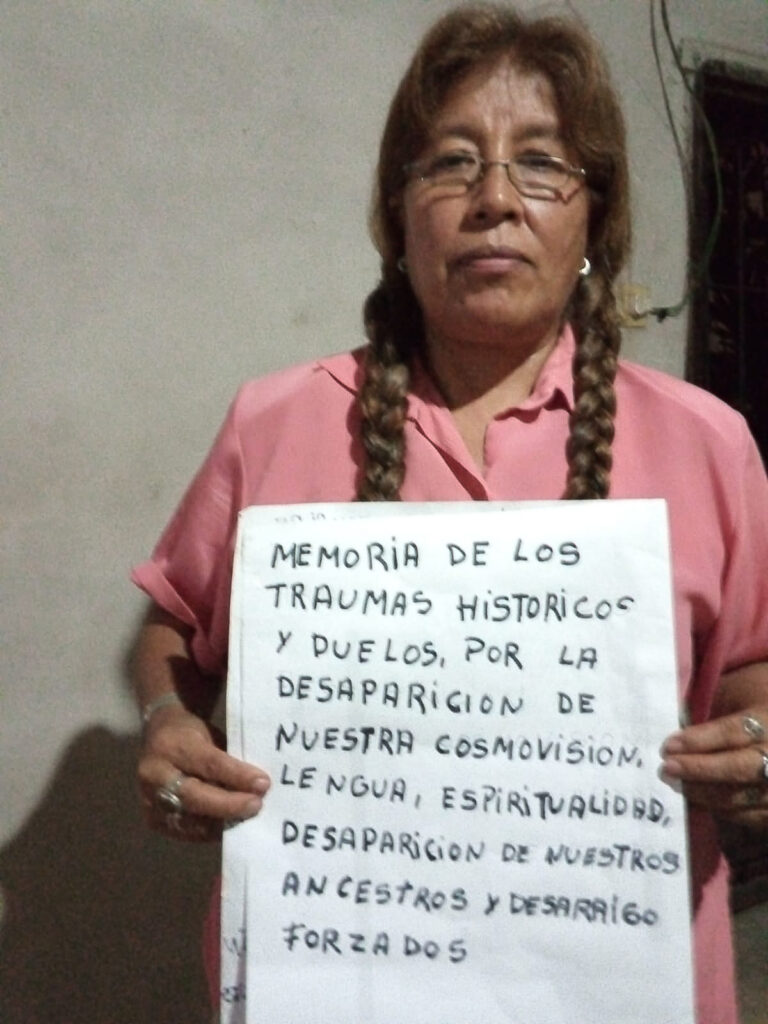 MEMORIA DE LOS
TRAUMAS HISTORICOS
Y DUELOS, POR LA
DESAPARICION DE
NUESTRA COSMOVISION,
LENGUA, ESPIRITUALIDAD,
DESAPARICION DE NUESTROS
ANCESTROS Y DESARRAIGO
FORZADOS